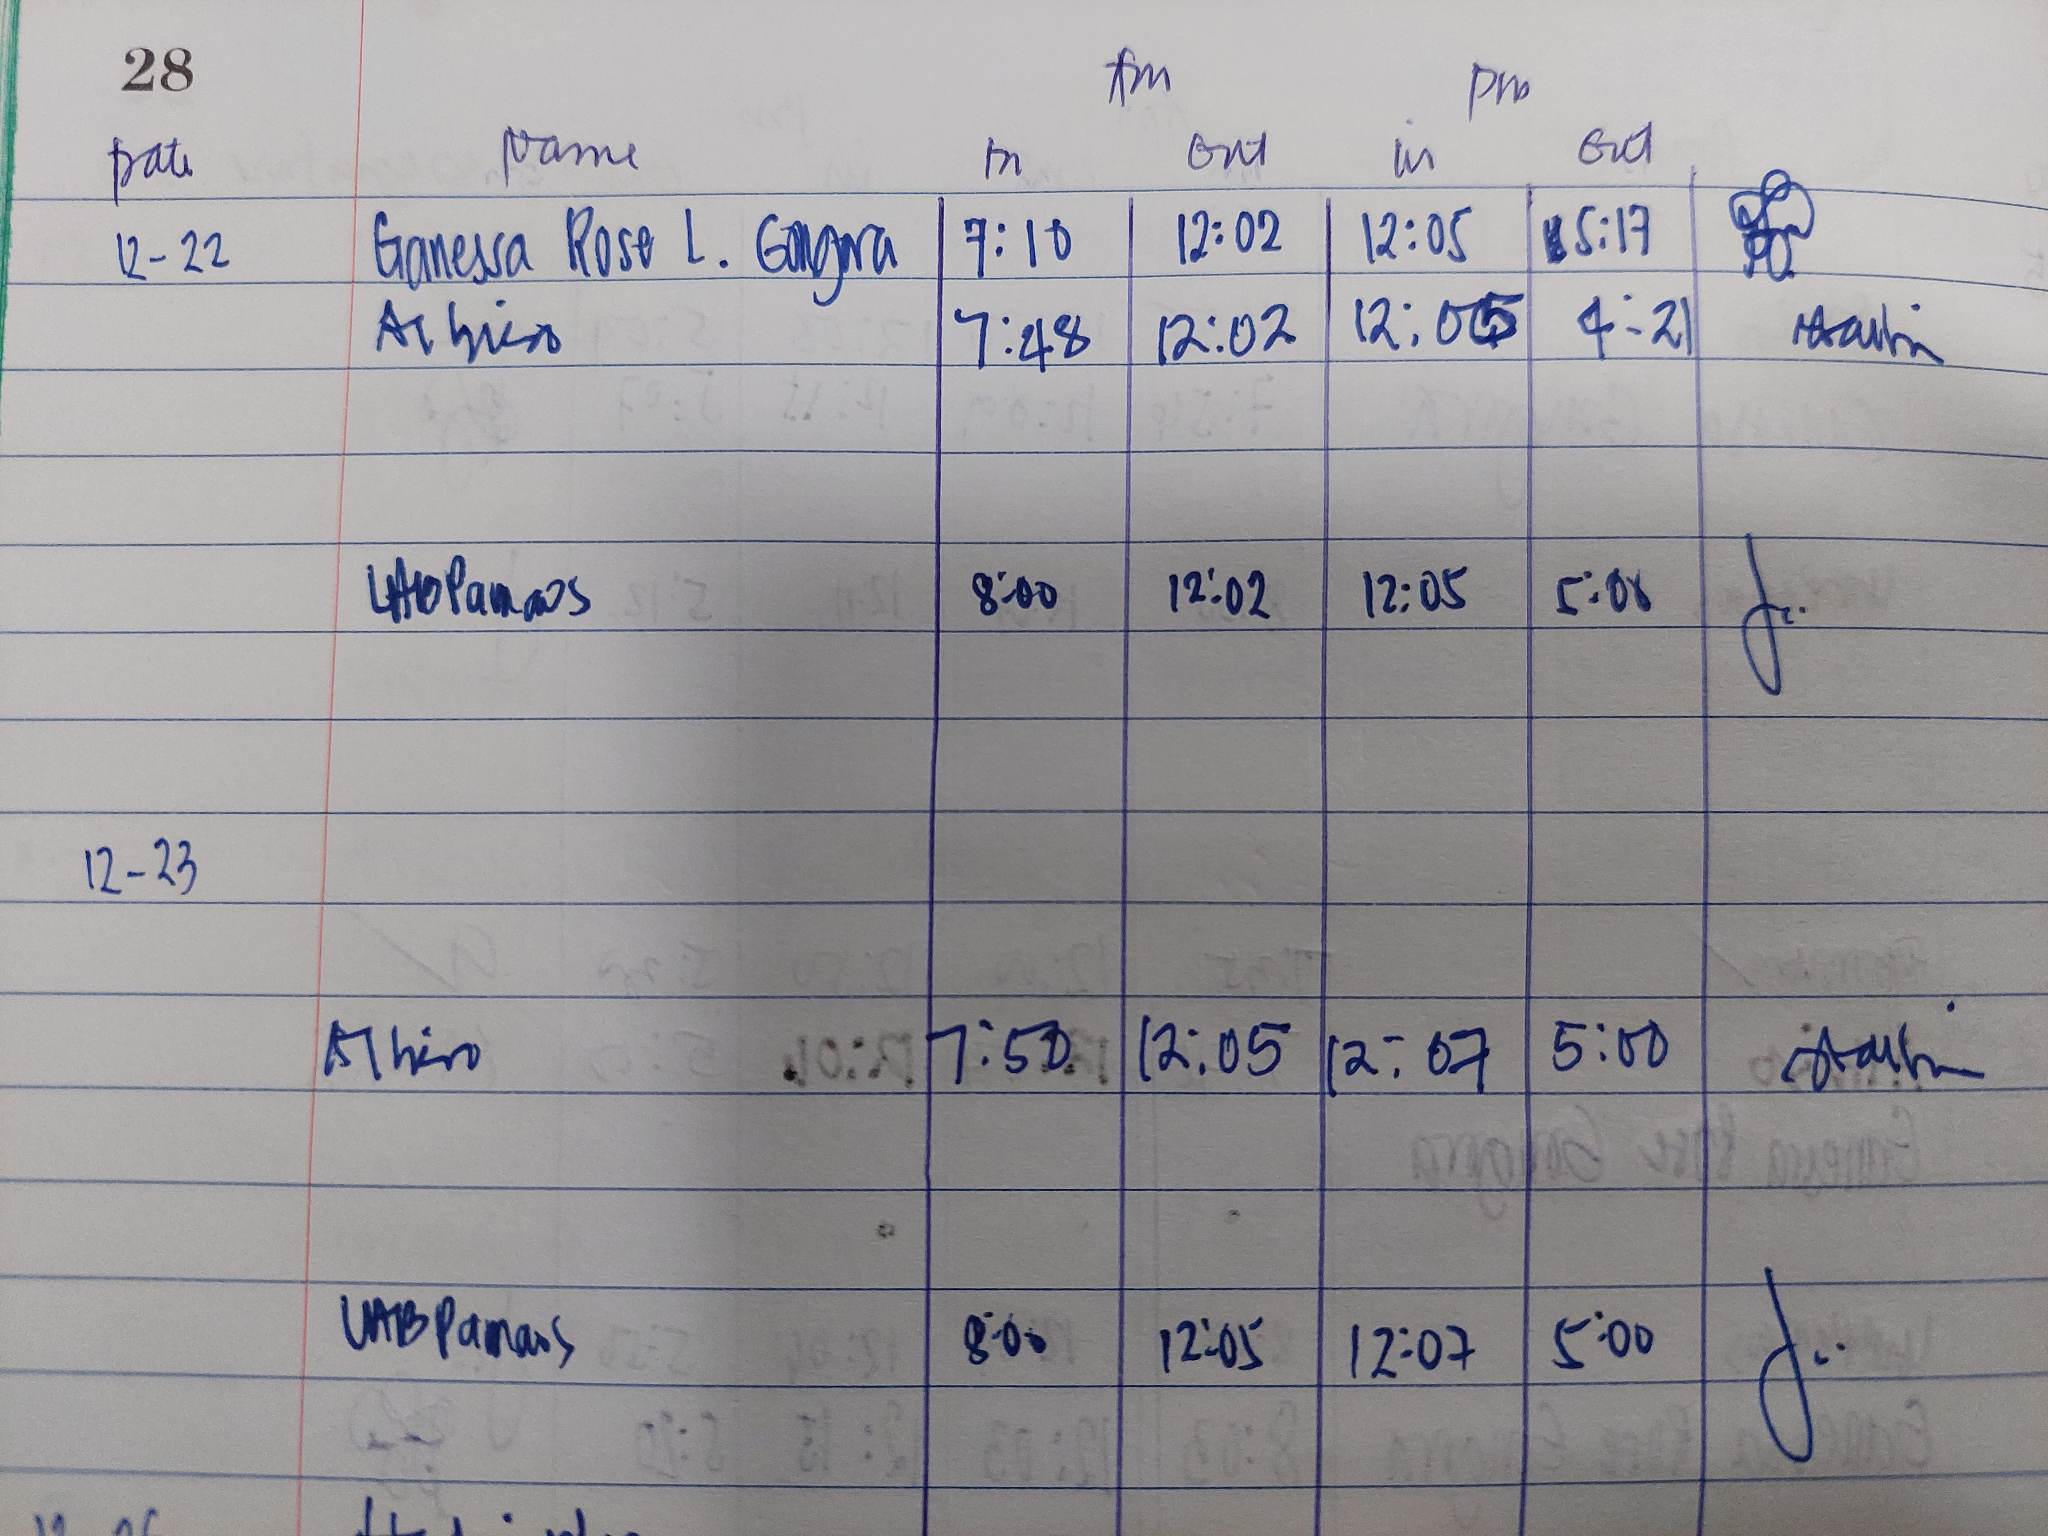 28
Am pm
Date Name in out in out
12-22 Ganessa Rose L. Gongora 7:10 12:02 12:05 5:17
7:48 12:02 12:05 4:21
LAB Pamaos 8:00 12:02 12:05 5:08
12-23
7:50 12:05 12:07 5:00
LAB Pamaos 8:00 12:05 12:07 5:00